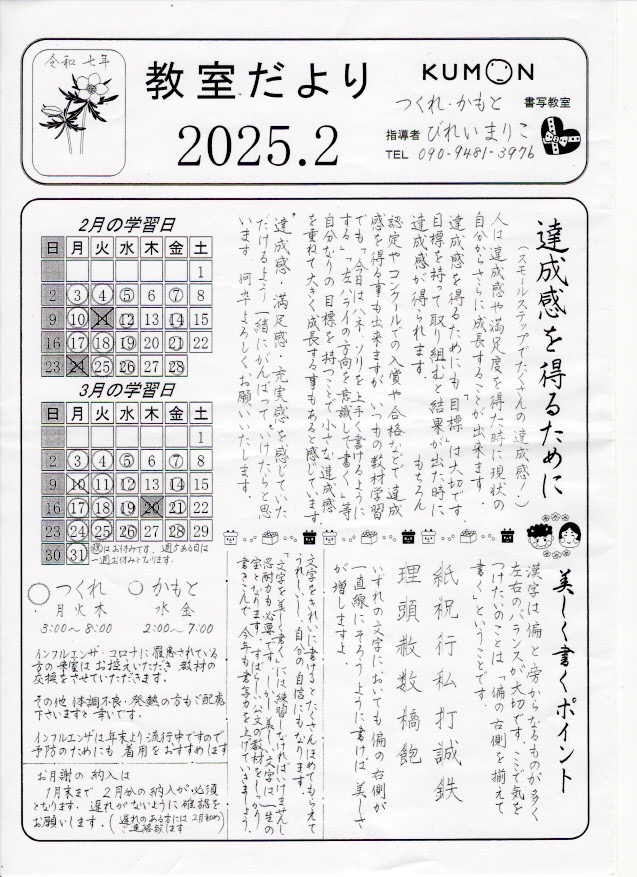 令和 七年
教室だより
2025.2
KUMON
つくれ・かもと 書写教室
指導者 びれいまりこ
TEL 090-9481-3976
達成感を得るために
(スモールステップでたくさんの達成感!)
人は達成感や満足度を得た時に現状の
自分からさらに成長することが出来ます。
達成感を得るためにも「目標」は大切です
目標を持って取り組むと結果が出た時に
達成感が得られます。 もちろん
認定やコンクールでの入賞や合格などで達成
感を得る事も出来ますが、いつもの教材学習
でも、「今日はハネ・ソリを上手く書けるように
する」、「左ハライの方向を意識して書く」等
自分なりの目標を持つことで小さな達成感
を重ねて大きく成長する事もあると感じています。
"達成感・満足感・充実感"を感じていた
だけるよう一緒にがんばって いけたらと思
います 何卒よろしくお願いいたします。
2月の学習日
日 月 火 水 木 金 土
1
2 3 4 5 6 7 8
9 10 11 12 13 14 15
16 17 18 19 20 21 22
23 24 25 26 27 28
3月の学習日
日 月 火 水 木 金 土
1
2 3 4 5 6 7 8
9 10 11 12 13 14 15
16 17 18 19 20 21 22
23 24 25 26 27 28 29
30 31
はお休みです。週5ある月は
一週お休みとなります。
つくれ かもと
月 火 木 水 金
3:00〜8:00 2:00〜7:00
インフルエンザ・コロナに罹患されている
方の来室はお控えいただき 教材の
交換をさせていただきます。
その他 体調不良・発熱の方もご配慮
下さいますと幸いです。
インフルエンザは年末より流行中ですので
予防のためにも 着用をおすすめします
お月謝の納入は
1月末まで 2月分の納入が必須
となります。 遅れがないように確認を
お願いします。(遅れのある方には2月初め
ご連絡致します)
美しく書くポイント
漢字は偏と旁からなるものが多く
左右のバランスが大切です。ここで気を
つけたいのことは「偏の右側を揃えて
書く」ということです。
紙 祝 行 私 打 誠 鉄
理 頭 救 数 橋 飽
いずれの文字においても偏の右側が
一直線にそろうように書けば、美しさ
が増しますよ。
文字をきれいに書けるとたくさんほめてもらえて
うれしいし、自分の自信にもなります。
「文字を美しく書く」には練習しなければいけませんし
忍耐力も必要です。しかし、美しい文字は一生の
宝となります。すばらしい公文の教材をしっかり
書きこんで 今年も書写力を上げていきましょう。